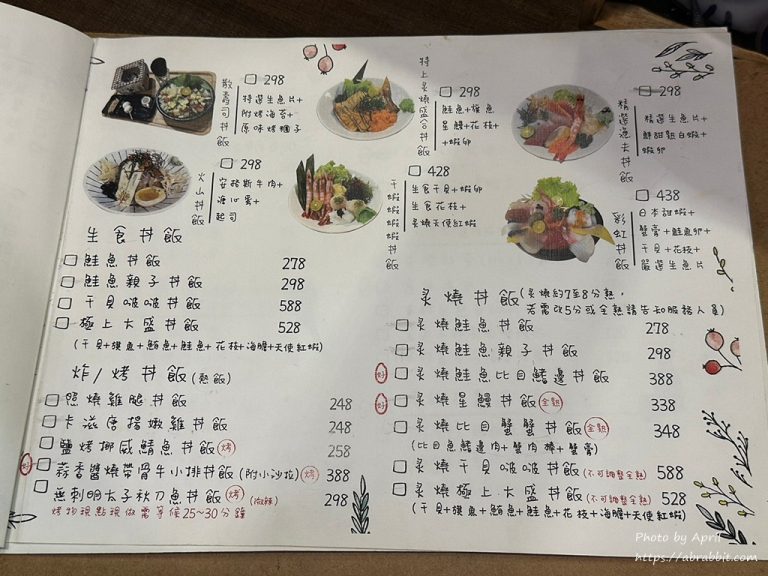 散壽司丼飯
298
特選生魚片+
附烤海苔+
原味烤糰子
火山丼飯
298
安格斯牛肉+
溏心蛋+
起司
特上炙燒盛合丼飯
298
鮭魚+旗魚
星鰻+花枝+
+蝦卵
干貝蝦蝦蝦丼飯
428
生食干貝+蝦卵
生食花枝+
炙燒天使紅蝦
精選漁夫丼飯
298
精選生魚片+
鮮甜熟白蝦+
蝦卵
彩虹丼飯
438
日本甜蝦+
蟹膏+鮭魚卵+
干貝+花枝+
嚴選生魚片
生食丼飯
鮭魚丼飯 278
鮭魚親子丼飯 298
干貝啵啵丼飯 588
極上大盛丼飯 528
(干貝+旗魚+鮪魚+鮭魚+花枝+海膽+天使紅蝦)
炸/烤丼飯(熱飯)
照燒雞腿丼飯 248
卡滋唐揚嫩雞丼飯 248
鹽烤挪威鯖魚丼飯 烤 258
蒜香醬燒帶骨牛小排丼飯(附小沙拉) 烤 388
無刺明太子秋刀魚丼飯 烤 (微辣) 298
烤物現點現做需等候25~30分鐘
炙燒丼飯(炙燒約7至8分熟,
若需改5分或全熟請告知服務人員)
炙燒鮭魚丼飯 278
炙燒鮭魚親子丼飯 298
炙燒鮭魚比目鰭邊丼飯 388
炙燒星鰻丼飯 全熟 338
炙燒比目蟹蟹丼飯 全熟 348
(比目魚鰭邊肉+蟹肉棒+蟹膏)
炙燒干貝啵啵丼飯(不可調整全熟) 588
炙燒極上大盛丼飯(不可調整全熟) 528
(干貝+旗魚+鮪魚+鮭魚+花枝+海膽+天使紅蝦)
Photo by April
https://abrabbit.com